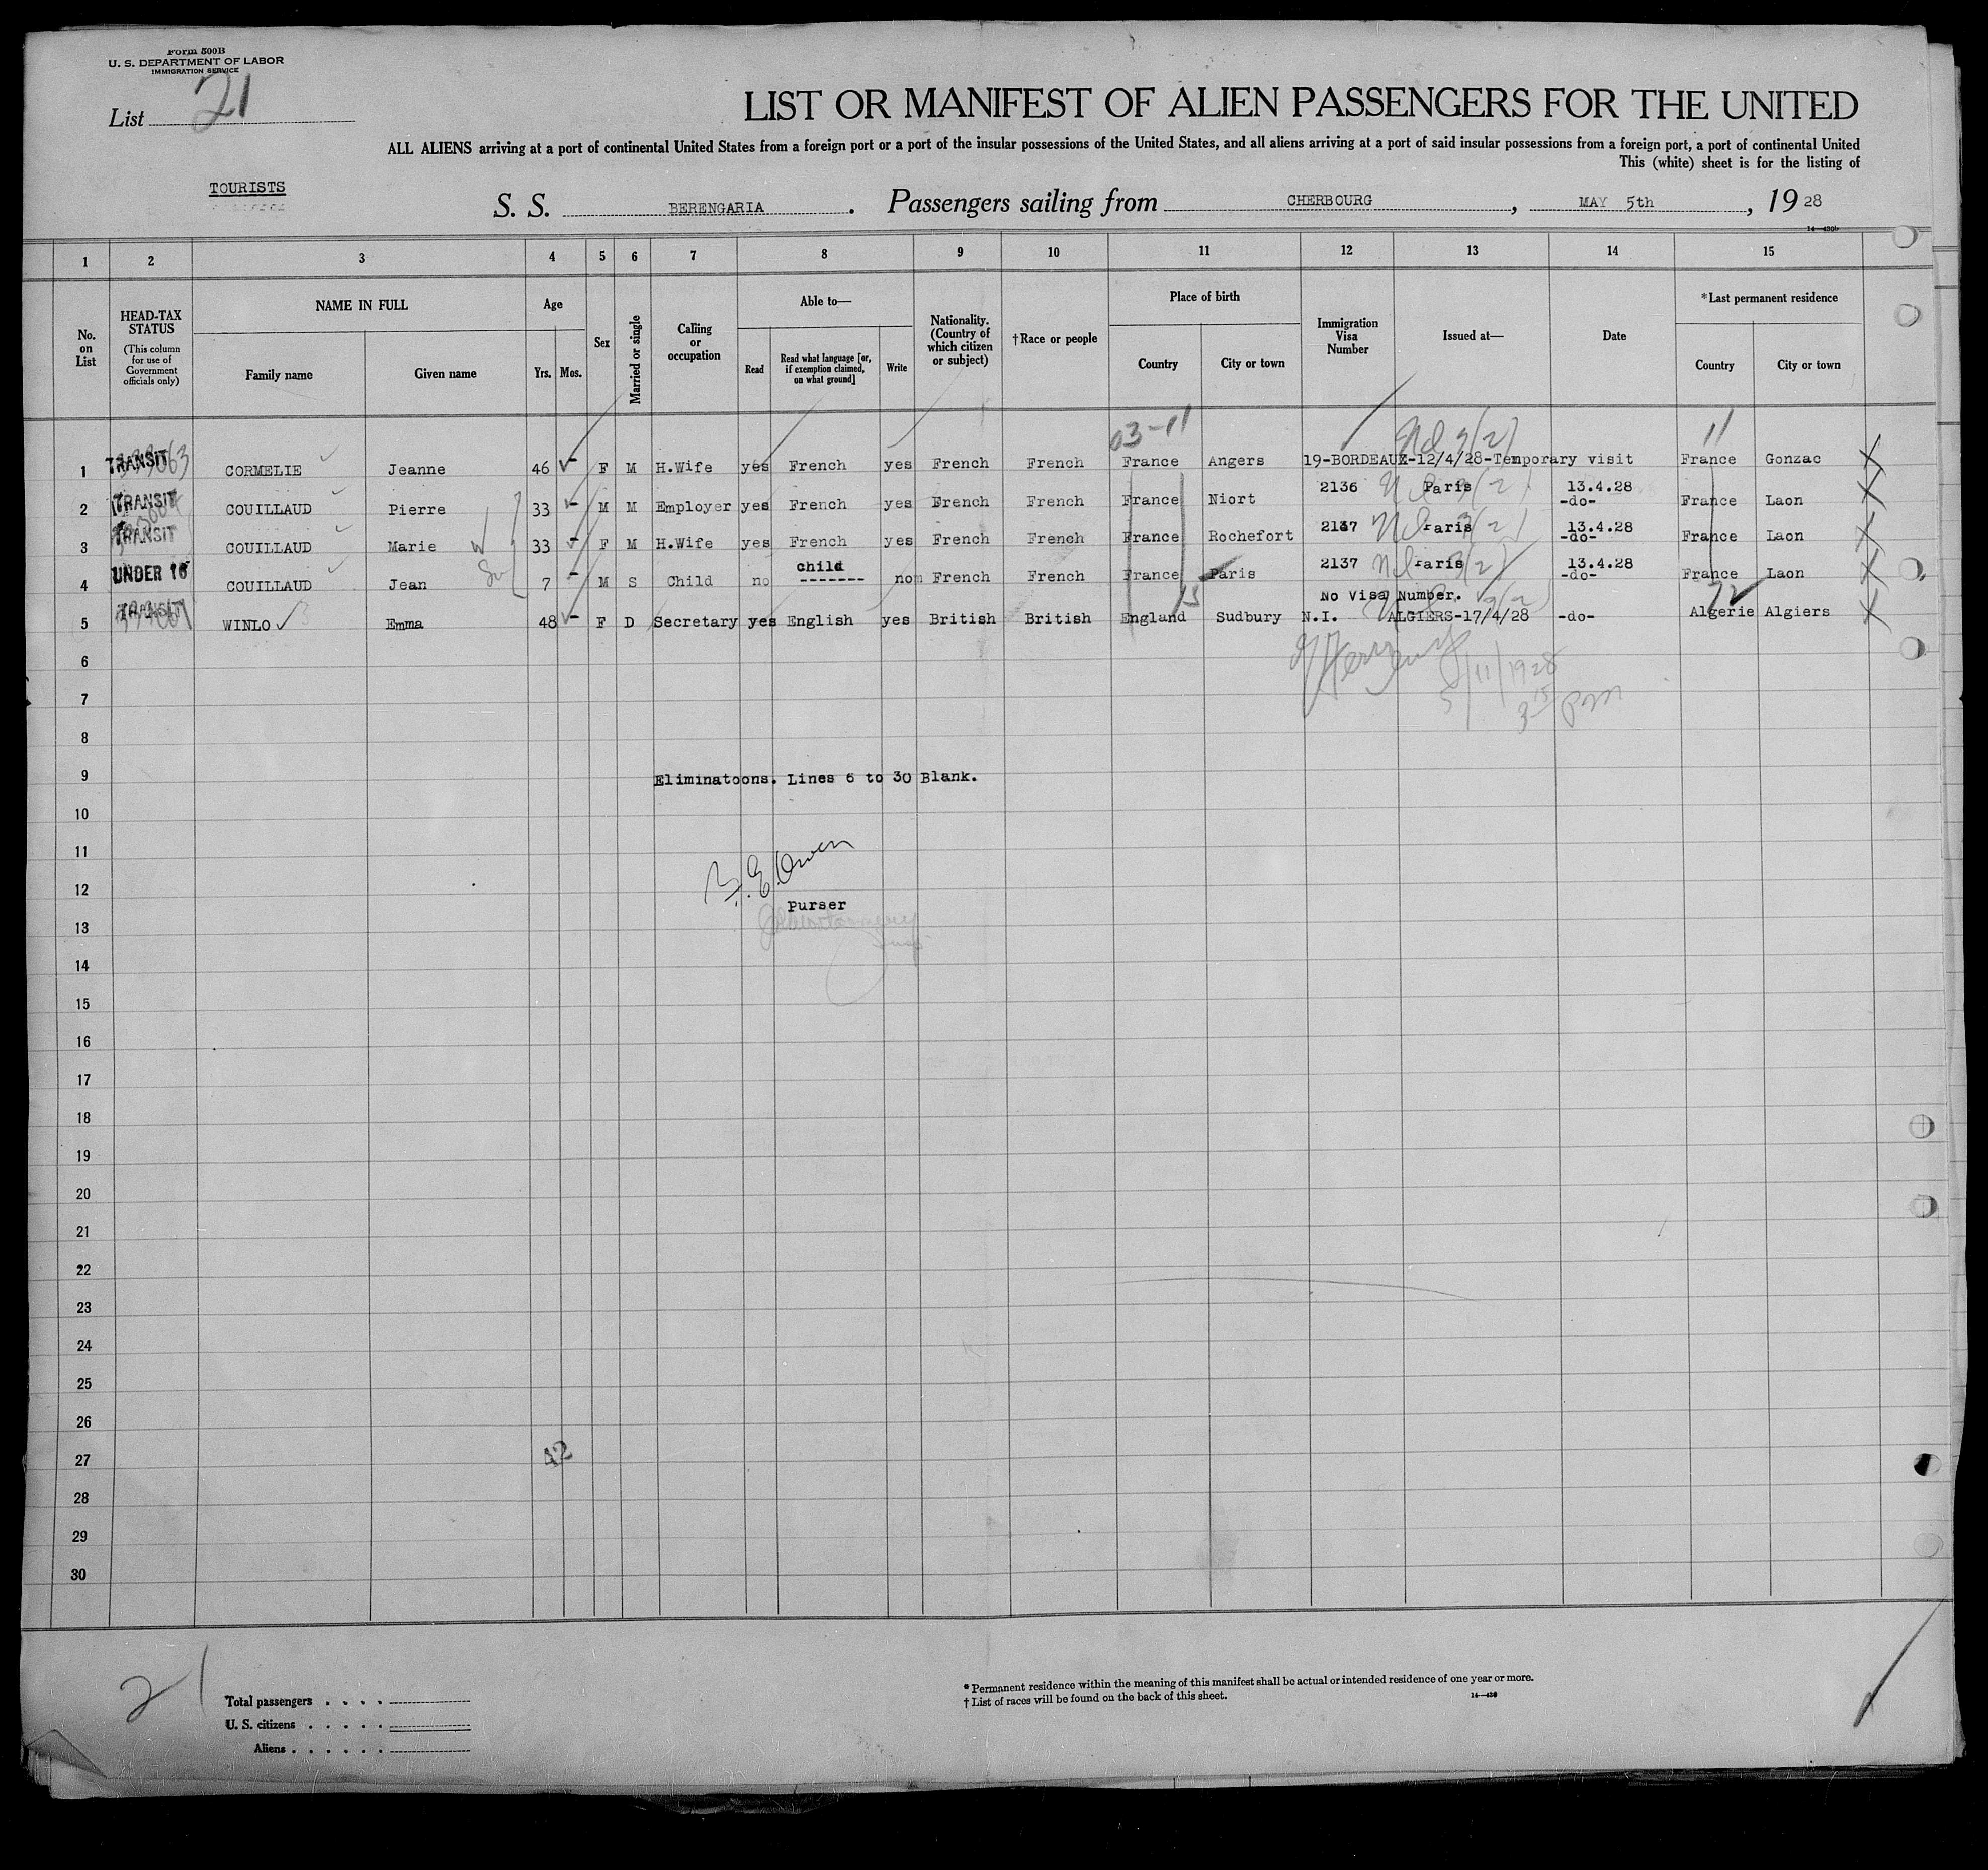 Form 500B
U. S. DEPARTMENT OF LABOR
IMMIGRATION SERVICE
List 21
LIST OR MANIFEST OF ALIEN PASSENGERS FOR THE UNITED
ALL ALIENS arriving at a port of continental United States from a foreign port or a port of the insular possessions of the United States, and all aliens arriving at a port of said insular possessions from a foreign port, a port of continental United
This (white) sheet is for the listing of
TOURISTS
S. S. BERENGARIA. Passengers sailing from CHERBOURG, MAY 5th, 1928
14—430b
1 2 3 4 5 6 7 8 9 10 11 12 13 14 15
No. on List
HEAD-TAX STATUS
(This column for use of Government officials only)
NAME IN FULL
Family name Given name
Age
Yrs. Mos.
Sex
Married or single
Calling or occupation
Able to—
Read
Read what language [or, if exemption claimed, on what ground]
Write
Nationality. (Country of which citizen or subject)
†Race or people
Place of birth
Country City or town
Immigration Visa Number
Issued at—
Date
*Last permanent residence
Country City or town
03-11 11
1 TRANSIT CORMELIE Jeanne 46 F M H.Wife yes French yes French French France Angers 19-BORDEAUX-12/4/28-Temporary visit France Gonzac
2 TRANSIT COUILLAUD Pierre 33 M M Employer yes French yes French French France Niort 2136 Paris 13.4.28 -do- France Laon
3 TRANSIT COUILLAUD Marie W 33 F M H.Wife yes French yes French French France Rochefort 2137 Paris 13.4.28 -do- France Laon
4 UNDER 16 COUILLAUD Jean 7 M S Child no child ------- no French French France Paris 2137 Paris 13.4.28 -do- France Laon
15 No Visa Number. 72
5 TRANSIT WINLO Emma 48 F D Secretary yes English yes British British England Sudbury N.I. ALGIERS-17/4/28 -do- Algerie Algiers
6
5/11/1928
7
3 15 PM
8
9 Eliminatoons. Lines 6 to 30 Blank.
10
11
12
Owen
purser
13
14
15
16
17
18
19
20
21
22
23
24
25
26
27 42
28
29
30
21
Total passengers . . . .
U. S. citizens . . . . .
Aliens . . . . . .
* Permanent residence within the meaning of this manifest shall be actual or intended residence of one year or more.
† List of races will be found on the back of this sheet.
14—430